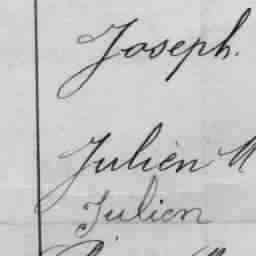 Joseph.
Julien M
Julien